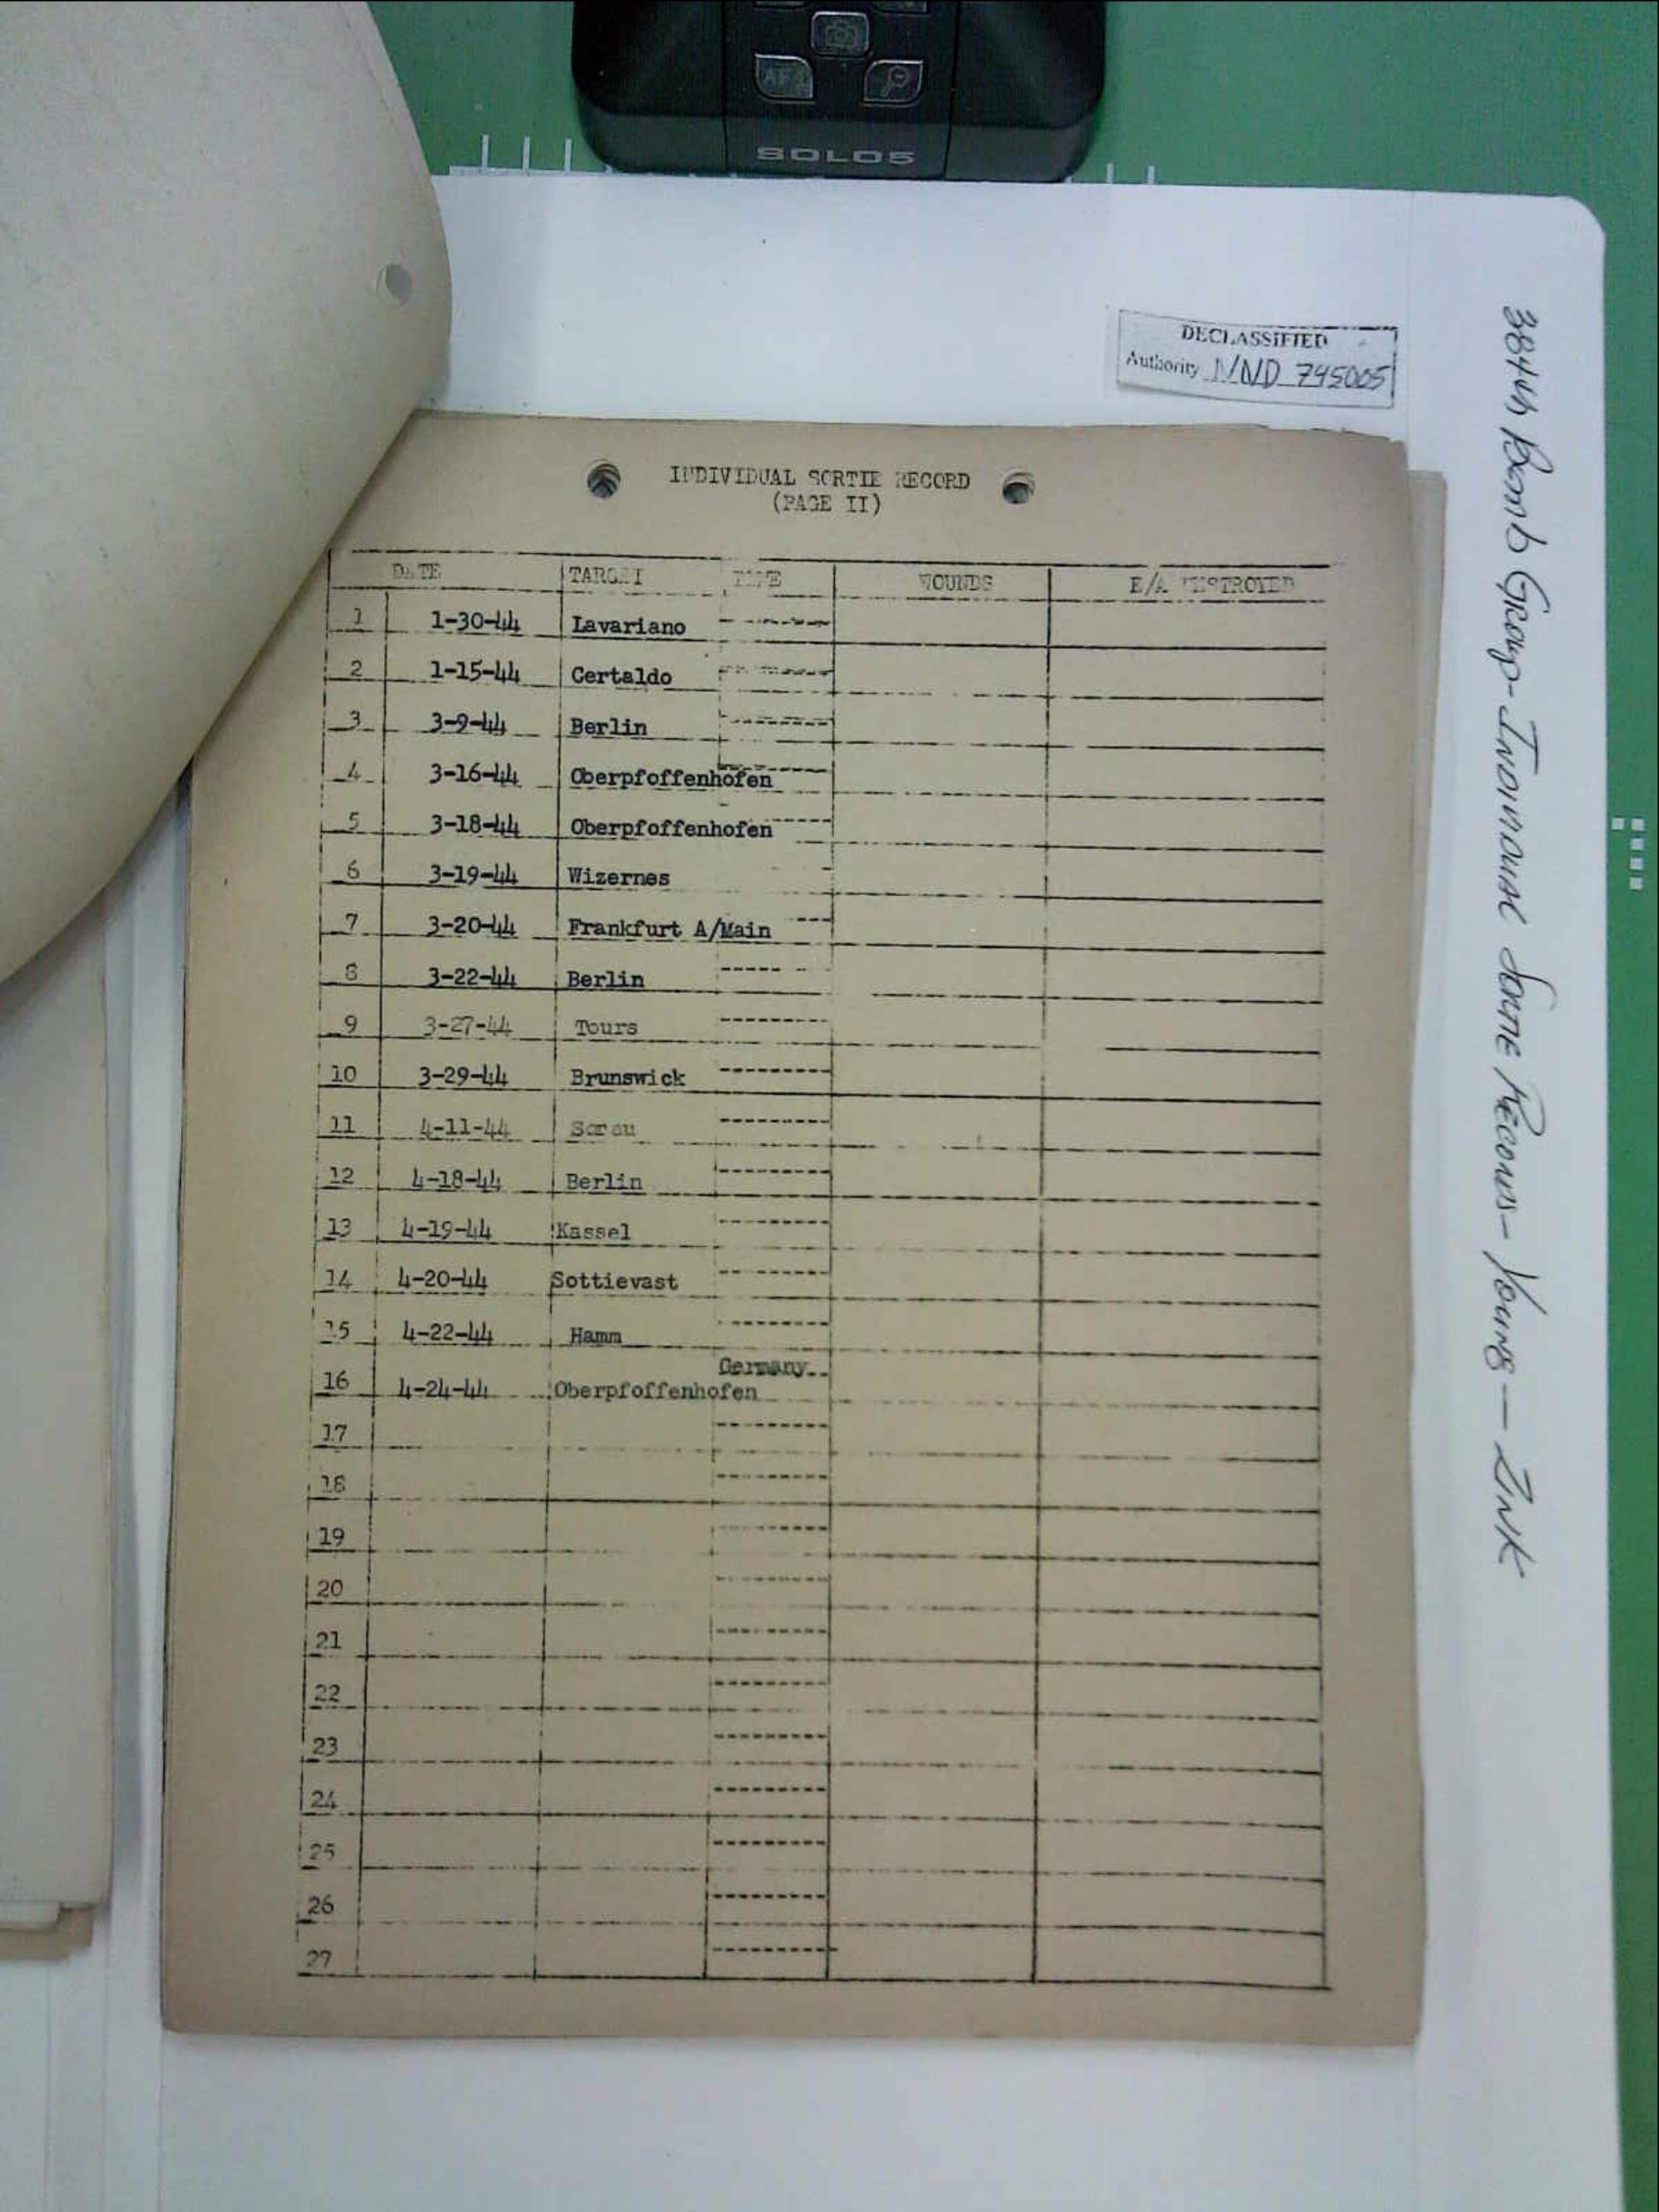 SOLO5
DECLASSIFIED
Authority NND 745005
384th Bomb Group - Individual Sortie Records - Young — Zink
INDIVIDUAL SORTIE RECORD
(PAGE II)
DATE TARGET TIME WOUNDS E/A DESTROYED
1 1-30-44 Lavariano
2 1-15-44 Certaldo
3 3-9-44 Berlin
4 3-16-44 Oberpfoffenhofen
5 3-18-44 Oberpfoffenhofen
6 3-19-44 Wizernes
7 3-20-44 Frankfurt A/Main
8 3-22-44 Berlin
9 3-27-44 Tours
10 3-29-44 Brunswick
11 4-11-44 Sorau
12 4-18-44 Berlin
13 4-19-44 Kassel
14 4-20-44 Sottievast
15 4-22-44 Hamm
Germany
16 4-24-44 Oberpfoffenhofen
17
18
19
20
21
22
23
24
25
26
27